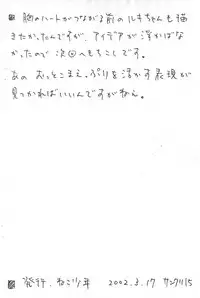 胸のハートがつながる前のルキちゃんも描
きたかったんですが、アイデアが浮かばな
かったので次回へもちこしです。
あの おっとこまえっぷりを活かす表現が
見つかればいいんですがねぇ。
発行 ねこ少年 2002.3.17 サンクリ15